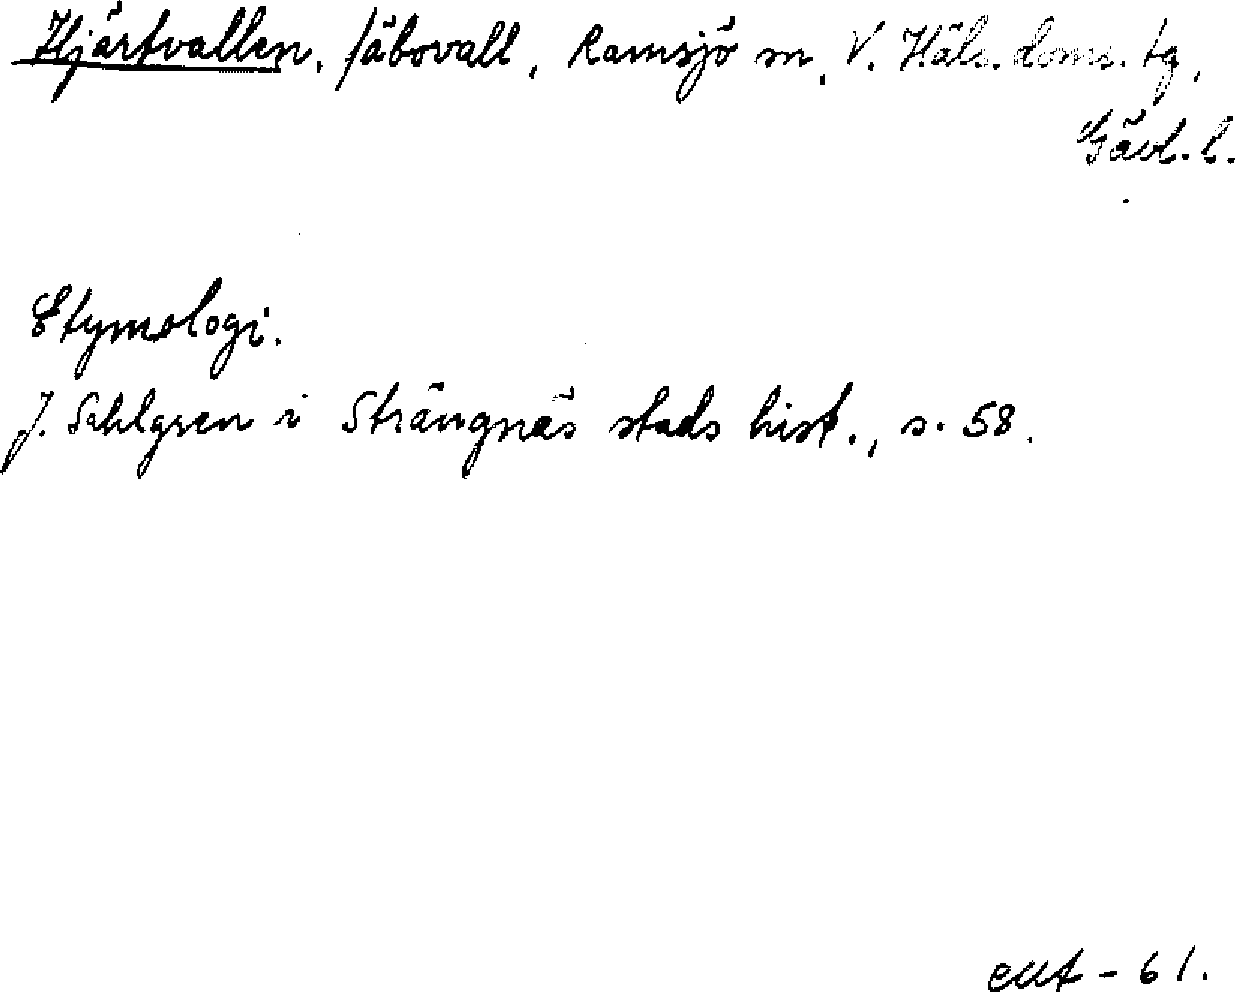 Hjärtvallen, säbovall, Ramsjö sn, V. Häls. doms. tg,
Gävl. l.
Etymologi.
J. Sahlgren i Strängnäs stads hist., s. 58.
- 61.